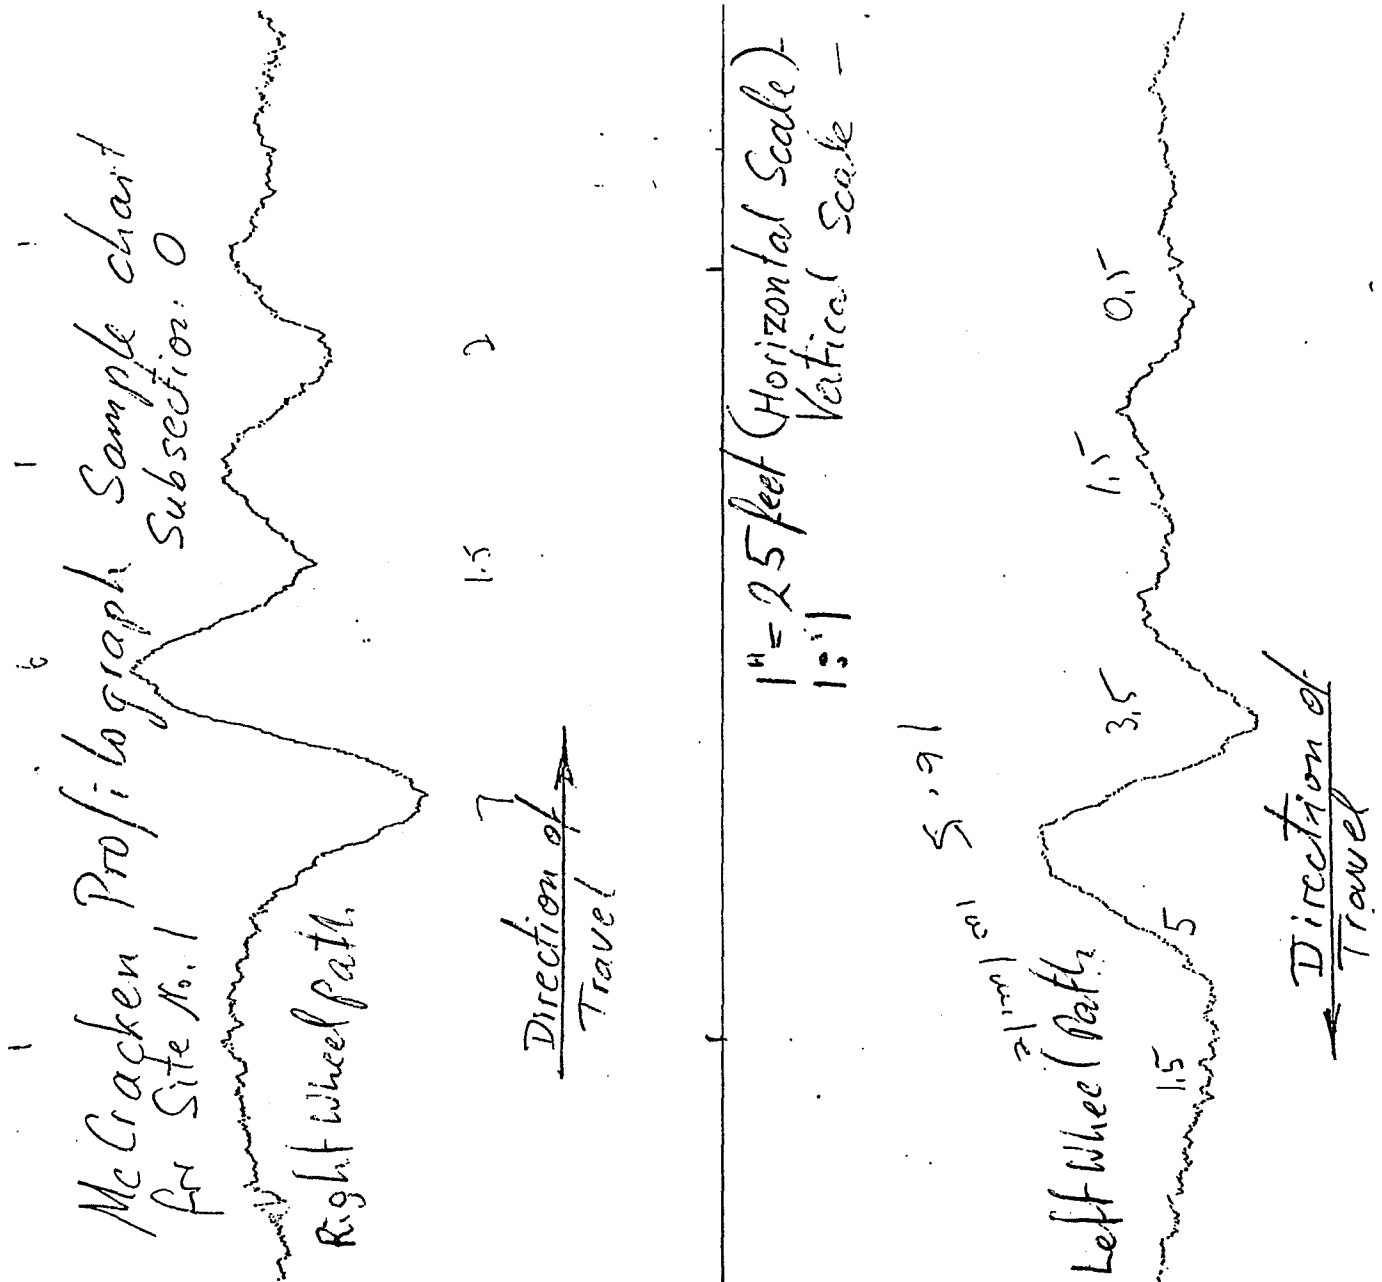 McCracken Profilograph Sample chart
for Site No. 1 Subsection: 0
1
6
1
1
Right Wheel Path
7
1.5
2
Direction of
Travel
1" = 25 feet (Horizontal Scale)
1:1 Vatical Scale
5.91
Left Wheel Path
1.5
5
3.5
1.5
0.5
Direction of
Travel